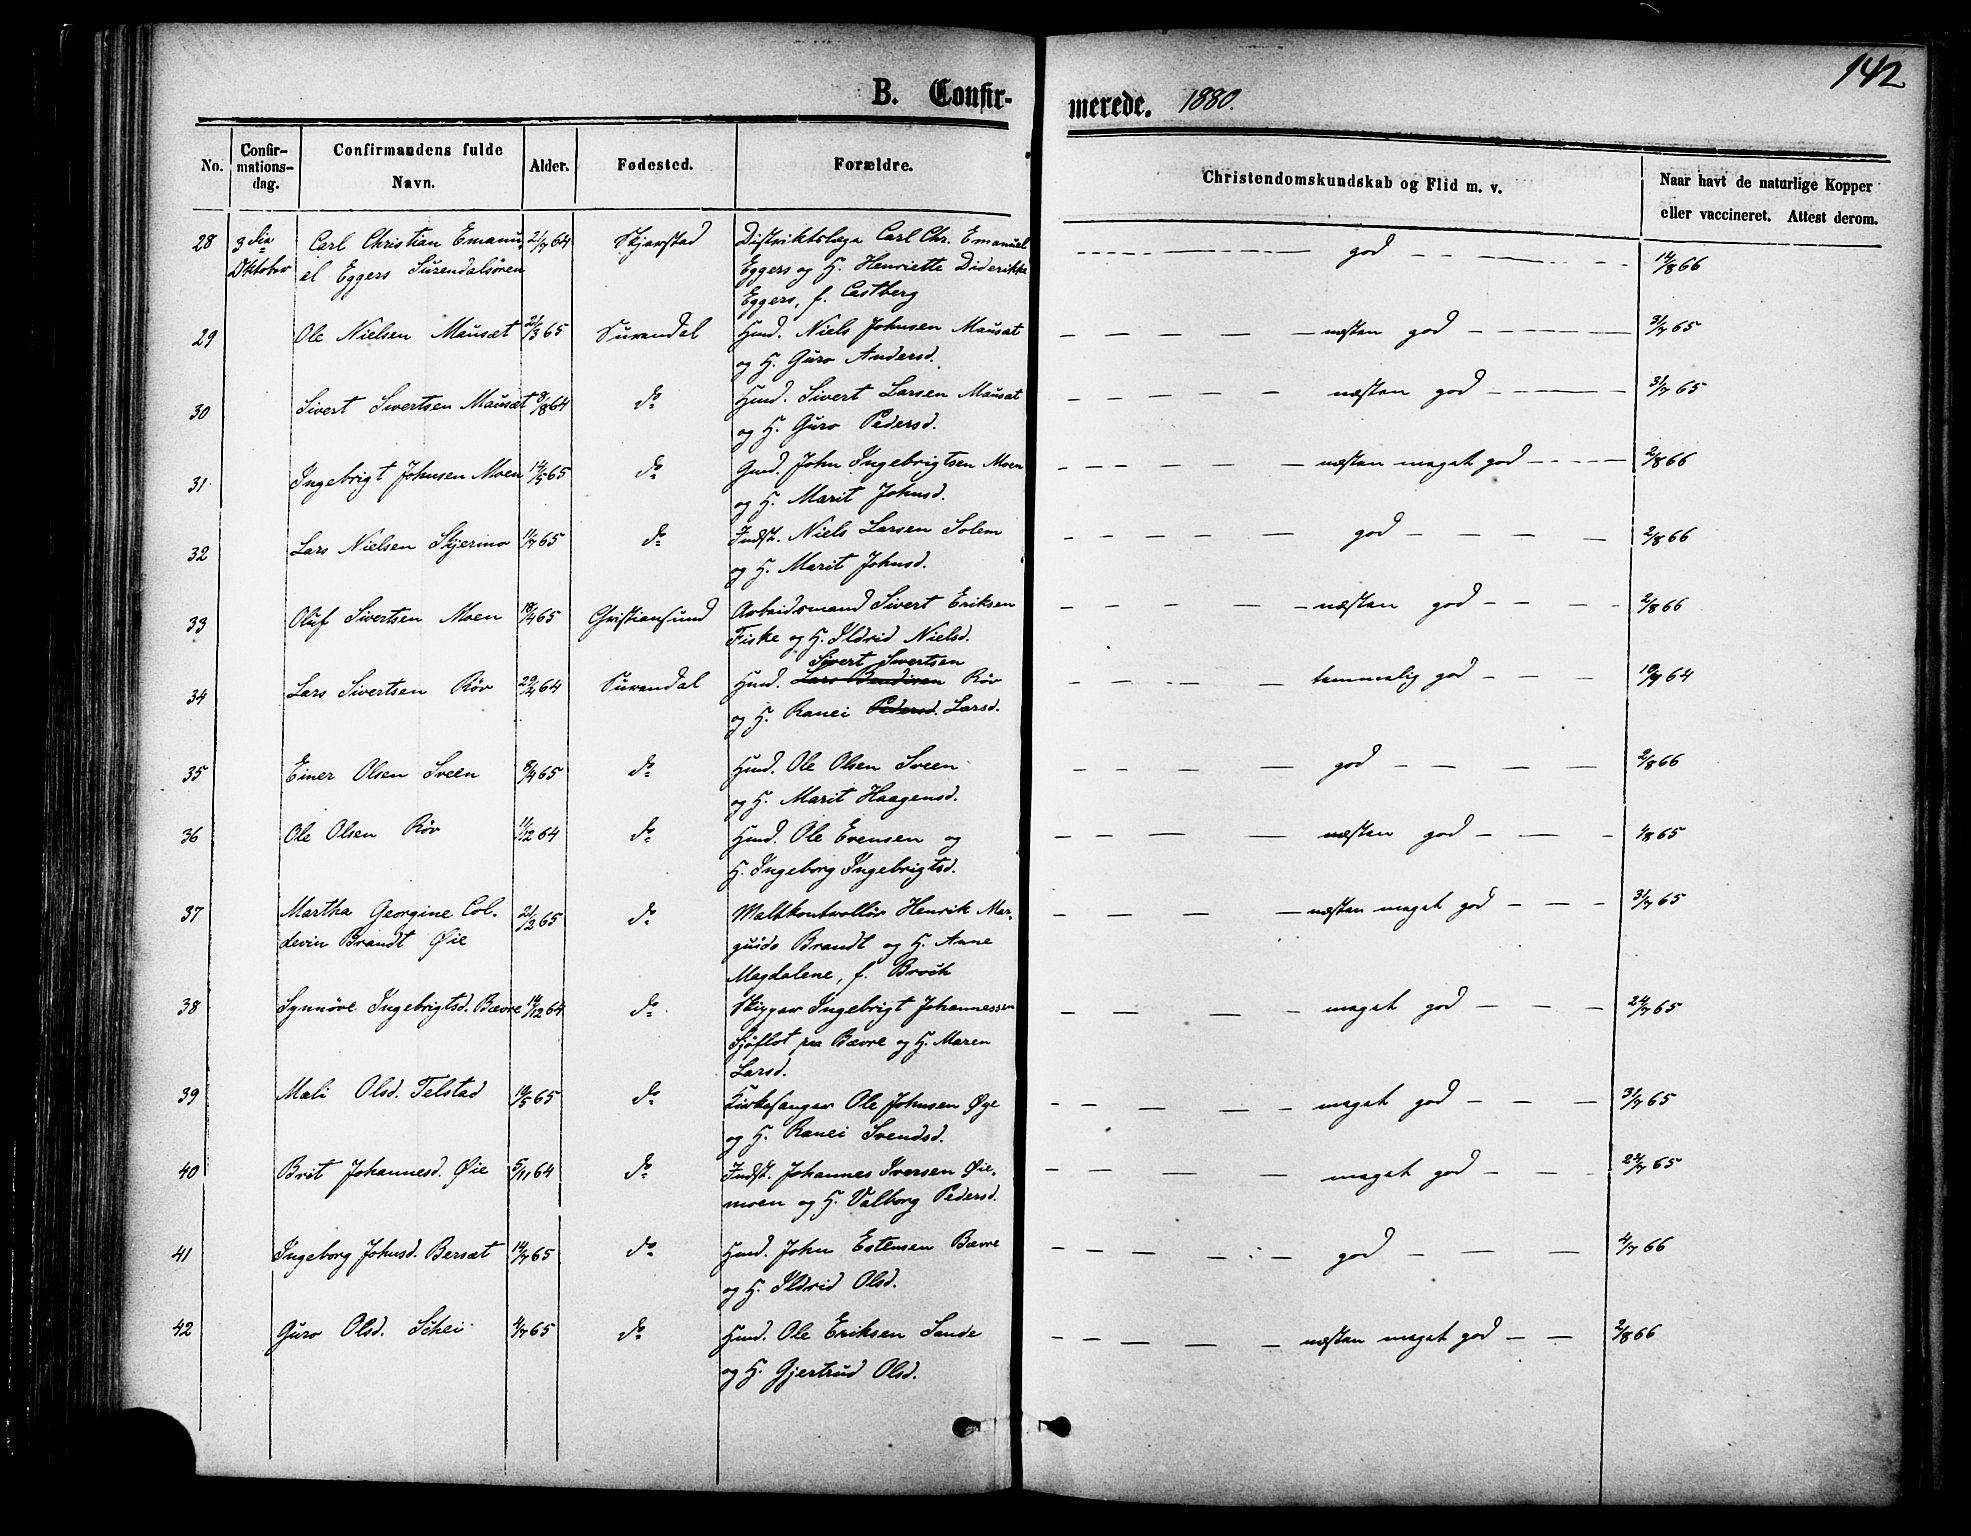 142
B. Confir-
merede. 1880.
No.
Confir-
mations-
dag.
Confirmandens fulde
Navn.
Alder.
Fødested.
Forældre.
Christendomskundskab og Flid m. v.
Naar havt de naturlige Kopper
eller vaccineret. Attest derom.
28 3die Carl Christian Emanu- 2/7 64 Skjerstad Distriktslæge Carl Chr. Emanuel god 14/8 66
Oktober el Eggers Surendalsören Eggers og H. Henriette Diderikke
Eggers, f. Castberg
29 Ole Nielsen Mausæt 21/3 65 Surendal Hmd. Niels Johnsen Mausæt næsten god 31/7 65
og H. Guro Andersd.
30 Sivert Sivertsen Mausæt 8/8 64 do Hmd. Sivert Larsen Mausæt næsten god 31/7 65
og H. Guro Pedersd.
31 Ingebrigt Johnsen Moen 14/5 65 do Gmd. John Ingebrigtsen Moen næsten meget god 2/8 66
og H. Marit Johnsd.
32 Lars Nielsen Skjermo 11/7 65 do Indst. Niels Larsen Solem god 2/8 66
og H. Marit Johnsd.
33 Oluf Sivertsen Moen 18/4 65 Christiansund Arbeidsmand Sivert Eriksen næsten god 2/8 66
Fiske og H. Ildrid Nielsd.
Sivert Sivertsen
34 Lars Sivertsen Röv 29/2 64 Surendal Hmd. Lars Røv temmelig god 64
og H. Ranei Pedersd. Larsd.
35 Einer Olsen Sveen 8/4 65 do Hmd. Ole Olsen Sveen god 2/8 66
og H. Marit Haagensd.
36 Ole Olsen Röv 11/12 64 do Hmd. Ole Evensen og næsten god 1/8 65
H. Ingeborg Ingebrigtsd.
37 Martha Georgine Col- 21/2 65 do Maltkontrollör Henrik Mar- næsten meget god 31/7 65
devin Brandt Øie guido Brandt og H. Anne
Magdalene, f. Broch
38 Synnöve Ingebrigtsd. Bævre 14/12 64 do Skipper Ingebrigt Johannessen meget god 24/7 65
Sjøflot paa Bævre og H. Maren
Larsd.
39 Mali Olsd. Telstad 10/5 65 do Kirkesanger Ole Johnsen Øye meget god 31/7 65
og H. Ranei Svendsd.
40 Brit Johannesd. Øie 5/11 64 do Indst. Johannes Iversen Øie- meget god 24/7 65
moen og H. Valborg Pedersd.
41 Ingeborg Johnsd. Bersæt 14/7 65 do Hmd. John Estensen Bævre god 4/7 66
og H. Ildrid Olsd.
42 Guro Olsd. Schei 4/7 65 do Hmd. Ole Eriksen Sande næsten meget god 2/8 66
og H. Gjertrud Olsd.